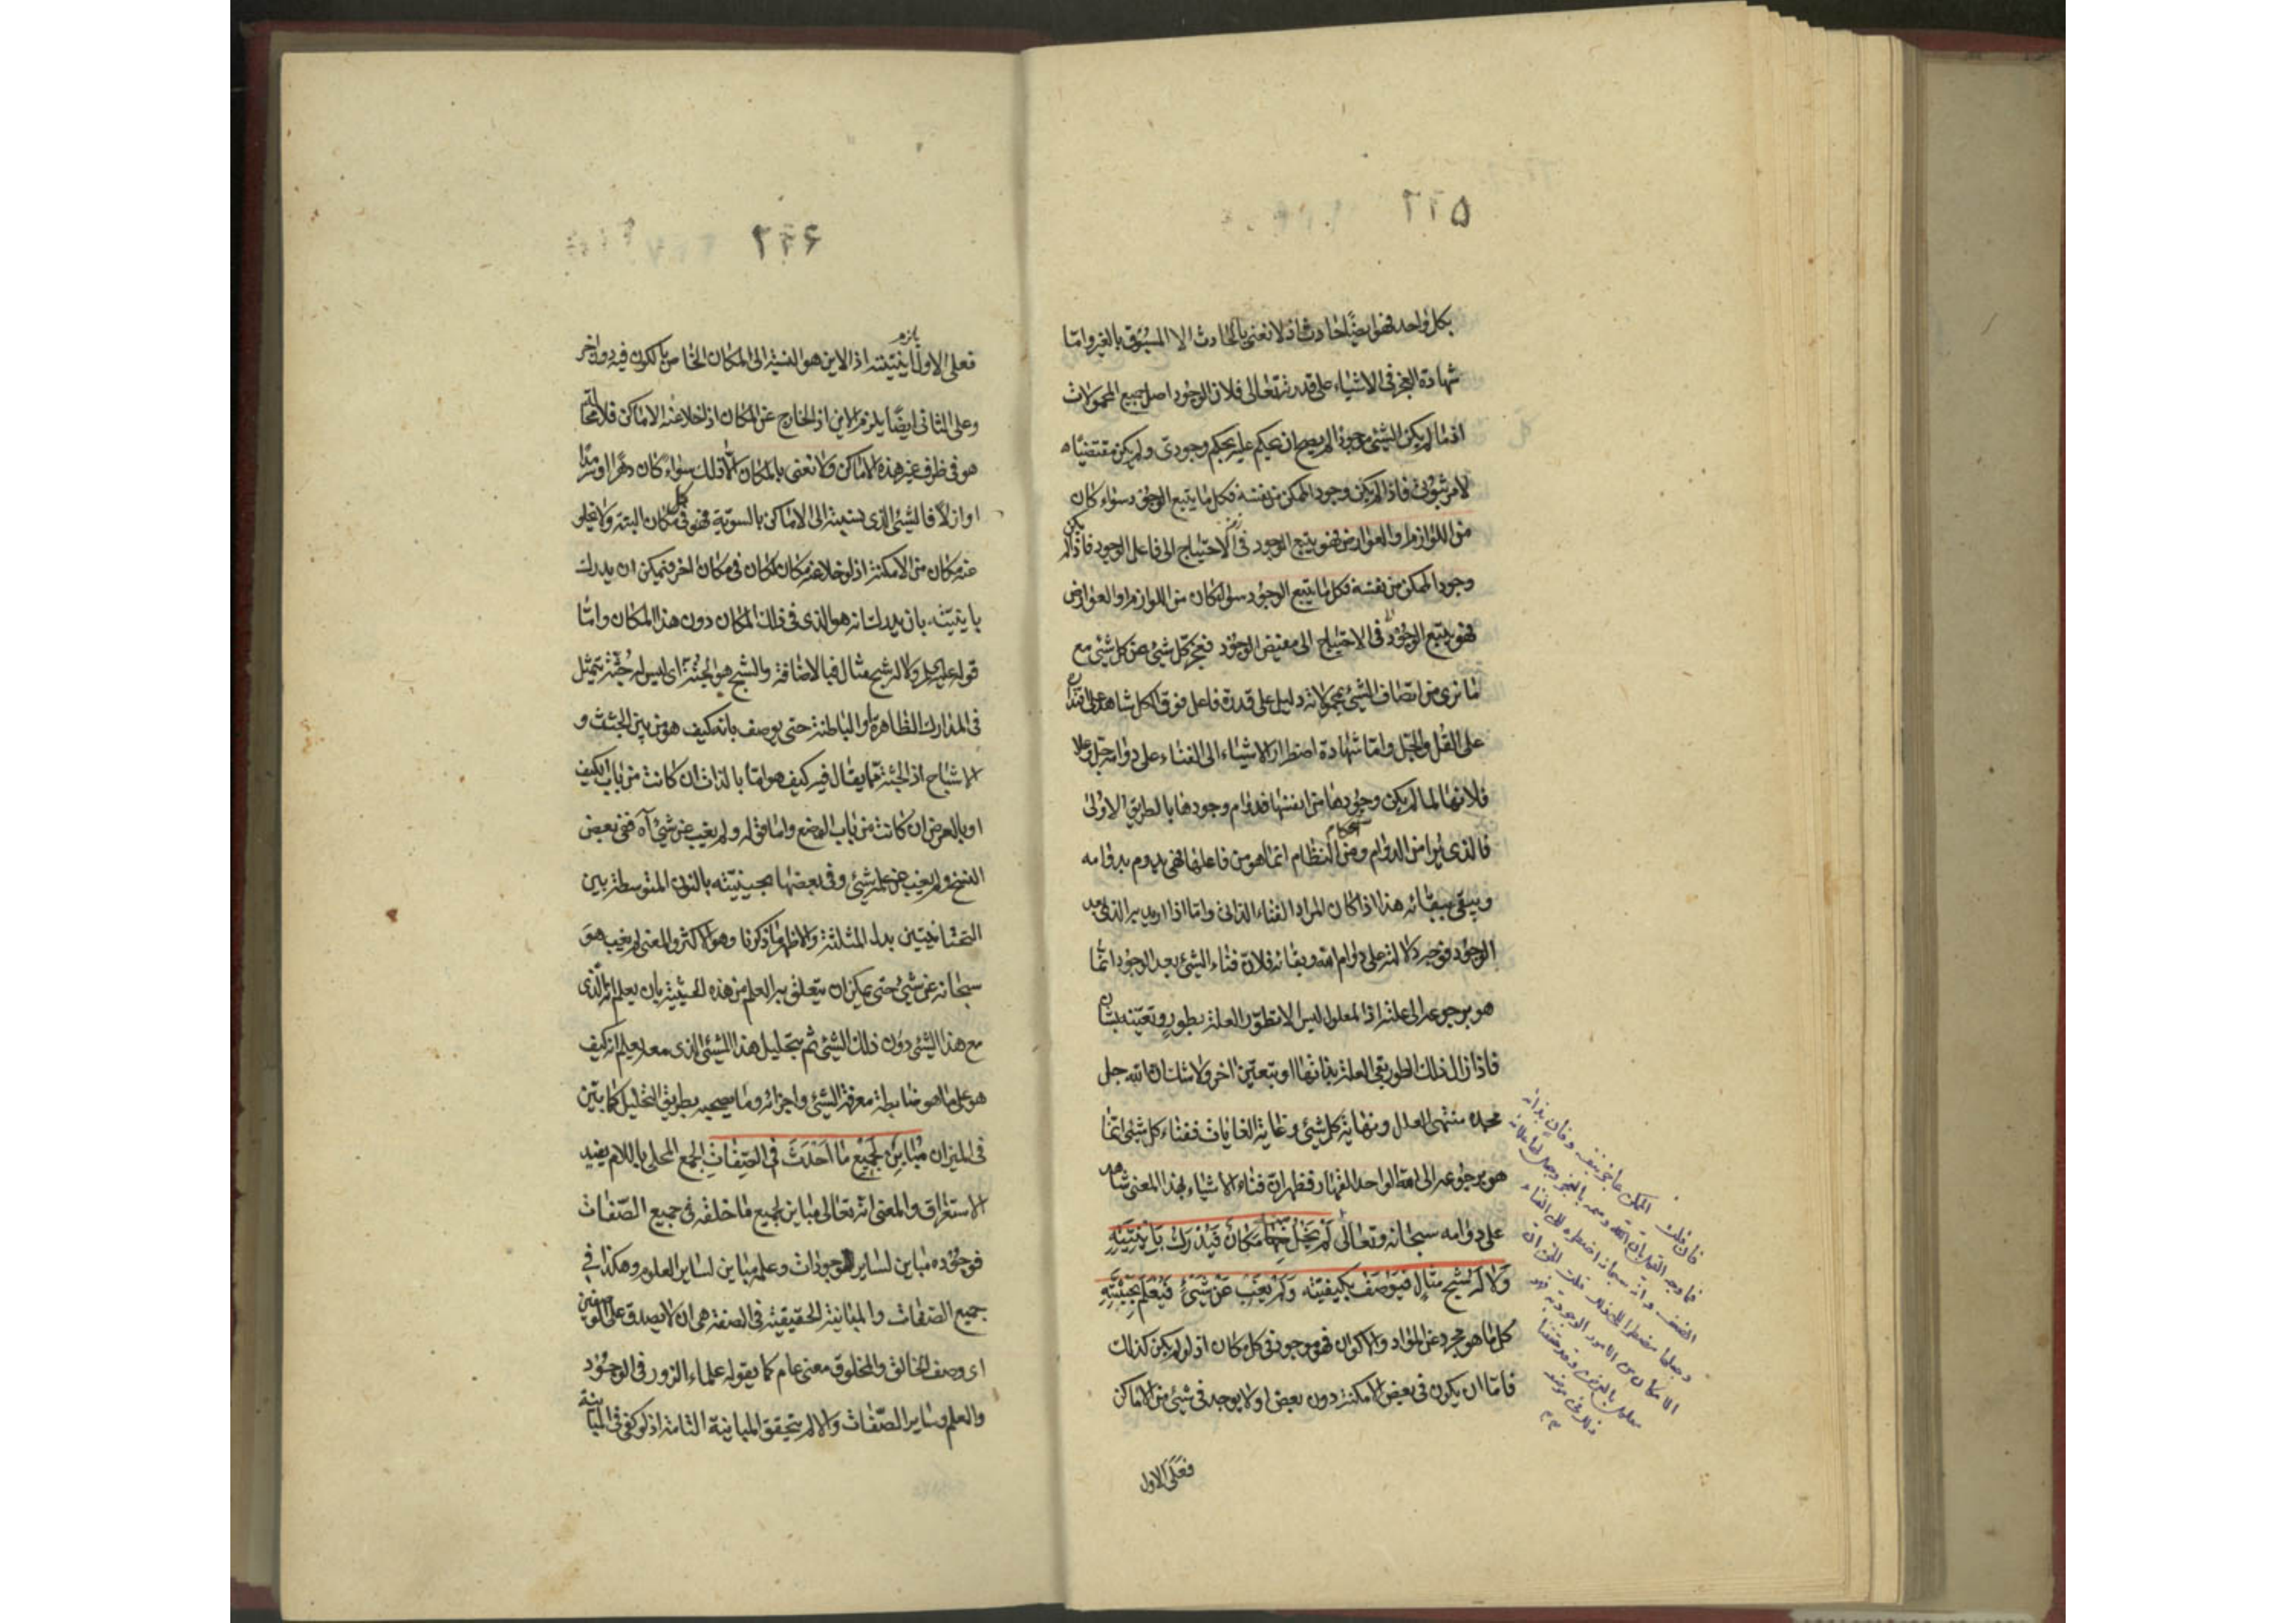 ٥٢٢
بكل واحد فهو ايضًا حادث اذ لا نعنى بالحادث الا المسبوق بالغير واما
شهادة العجز فى الاشياء على قدرته تعالى فلان الوجود اصل جميع المحمولات
اذ ما لم يكن الشئ موجودًا لم يصح ان يحكم عليه بحكم وجودى ولم يكن مقتضيًا
لامر ثبوتى فاذا لم يكن وجود الممكن من نفسه فكل ما يتبع الوجود سواء كان
من اللوازم او العوارض فهو يتبع الوجود فى الاحتياج الى فاعل الوجود فاذا لم يكن
وجود الممكن من نفسه فكل ما يتبع الوجود سواء كان من اللوازم او العوارض
فهو يتبع الوجود فى الاحتياج الى مفيض الوجود فعجز كل شئ عن كل شئ مع
ما نرى من اتصاف الشئ بمحمولاته دليل على قدرة فاعل فوق الكل شاهد على اقتداره
على القل والجل واما شهادة اضطرار الاشياء الى الفناء على دوامه جل وعلا
فلانها لما لم يكن وجودها من انفسها فدوام وجودها بالطريق الاولى
فالذى يرا من الدوام ومن احكام النظام انما هو من فاعلها فهى يدوم بدوامه
ويبقى ببقائه هذا اذا كان المراد الفناء الذاتى واما اذا اريد به الذى بعد
الوجود فوجه دلالته على دوام الله وبقائه فلان فناء الشئ بعد الوجود انما
هو برجوعه الى علته اذ المعلول ليس الا تطور العلة بطور وتعينه بشان
فاذا زال ذلك الطور بقى العلة بذاتها او بتعين اخر ولا شك ان الله جل
مجده منتهى العلل ونهاية كل شئ وغاية الغايات ففناء كل شئ انما
هو برجوعه الى الله الواحد القهار فظهر ان فناء الاشياء بهذا المعنى شاهد
على دوامه سبحانه وتعالى لَمْ يَخْلُ مِنْهُ مَكَانٌ فَيُدْرَكَ بِاَيْنِيَّتِهِ
وَلَا لَهُ شَبَحُ مِثَالٍ فَيُوصَفَ بِكَيْفِيَّتِهِ وَلَمْ يَغِبْ عَنْ شَئْ فَيُعْلَمَ بِحَيْثِيَّتِهِ
كل ما هو مجرد عن المواد والاكوان فهو موجود فى كل مكان اذ لو لم يكن كذلك
فاما ان يكون فى بعض الامكنة دون بعض او لا يوجد فى شئ من الاماكن
فعلى الاول
فان قلت الممكن عاجز بنفسه وفان بذاته
٢٢٦
فعلى الاول يلزم اينيته اذ الاين هو النسبة الى المكان الخاص بالكون فيه دون اخر
وعلى الثانى ايضًا يلزم الاين اذ الخارج عن المكان اذ اخلا عنه الاماكن فلا محالة
هو فى ظرف غير هذه الاماكن ولا نعنى بالمكان الا ذلك سواء كان دهرًا او سرمدًا
او ازلًا فالشئ الذى نسبته الى الاماكن بالسوية فهو فى كل مكان البتة ولا يخلو
عنه مكان من الامكنة اذ لو خلا عنه مكان لكان فى مكان اخر فيمكن ان يدرك
باينيته بان يدرك انه هو الذى فى ذلك المكان دون هذا المكان واما
قوله عليه السلم ولا له شبح مثال فبالاضافة والشبح هو الجثة اى ليس له جثة يتمثل
فى المدارك الظاهرة او الباطنة حتى يوصف بانه كيف هو من بين الجثث و
الاشباح اذ الجثة مما يقال فيه كيف هو اما بالذات ان كانت من باب الكيف
او بالعرض ان كانت من باب الوضع واما قوله ولم يغب عن شئ آه ففى بعض
النسخ ولم يغب عن علمه شئ وفى بعضها بحينيته بالنون المتوسطة بين
التحتانيتين بدل المثلثة والاظهر ما ذكرنا وهو الاكثر والمعنى لم يغب هو
سبحانه عن شئ حتى يمكن ان يتعلق به العلم من هذه الحيثية بان يعلم انه الذى
مع هذا الشئ دون ذلك الشئ ثم بتحليل هذا الشئ الذى معه يعلم انه كيف
هو على ما هو ضابطة معرفة الشئ واجزائه وما يصحبه بطريق التحليل كما بين
فى الميزان مُبَايِنٌ لِجَمِيعِ مَا اَحْدَثَ فِى الصِّفَاتِ الجمع المحلى باللام يفيد
الاستغراق والمعنى انه تعالى مباين لجميع ما خلقه فى جميع الصفات
فوجوده مباين لساير الموجودات وعلمه مباين لساير العلوم وهكذا فى
جميع الصفات والمباينة الحقيقية فى الصفة هى ان لا يصدق على الموصوفين
اى وصف الخالق والمخلوق معنى عام كما يقوله علماء الزور فى الوجود
والعلم وساير الصفات والا لم يتحقق المباينة التامة اذ لو كفى فى المباينة